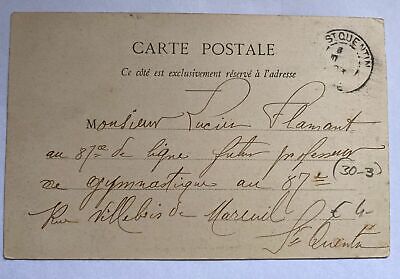 ST QUENTIN
CARTE POSTALE
Ce côté est exclusivement réservé à l'adresse
Monsieur Lucien Flamant
au 87me de ligne futur professeur
de gymnastique au 87e (30-3)
Rue Villebois de Mareuil £4-
St Quentin